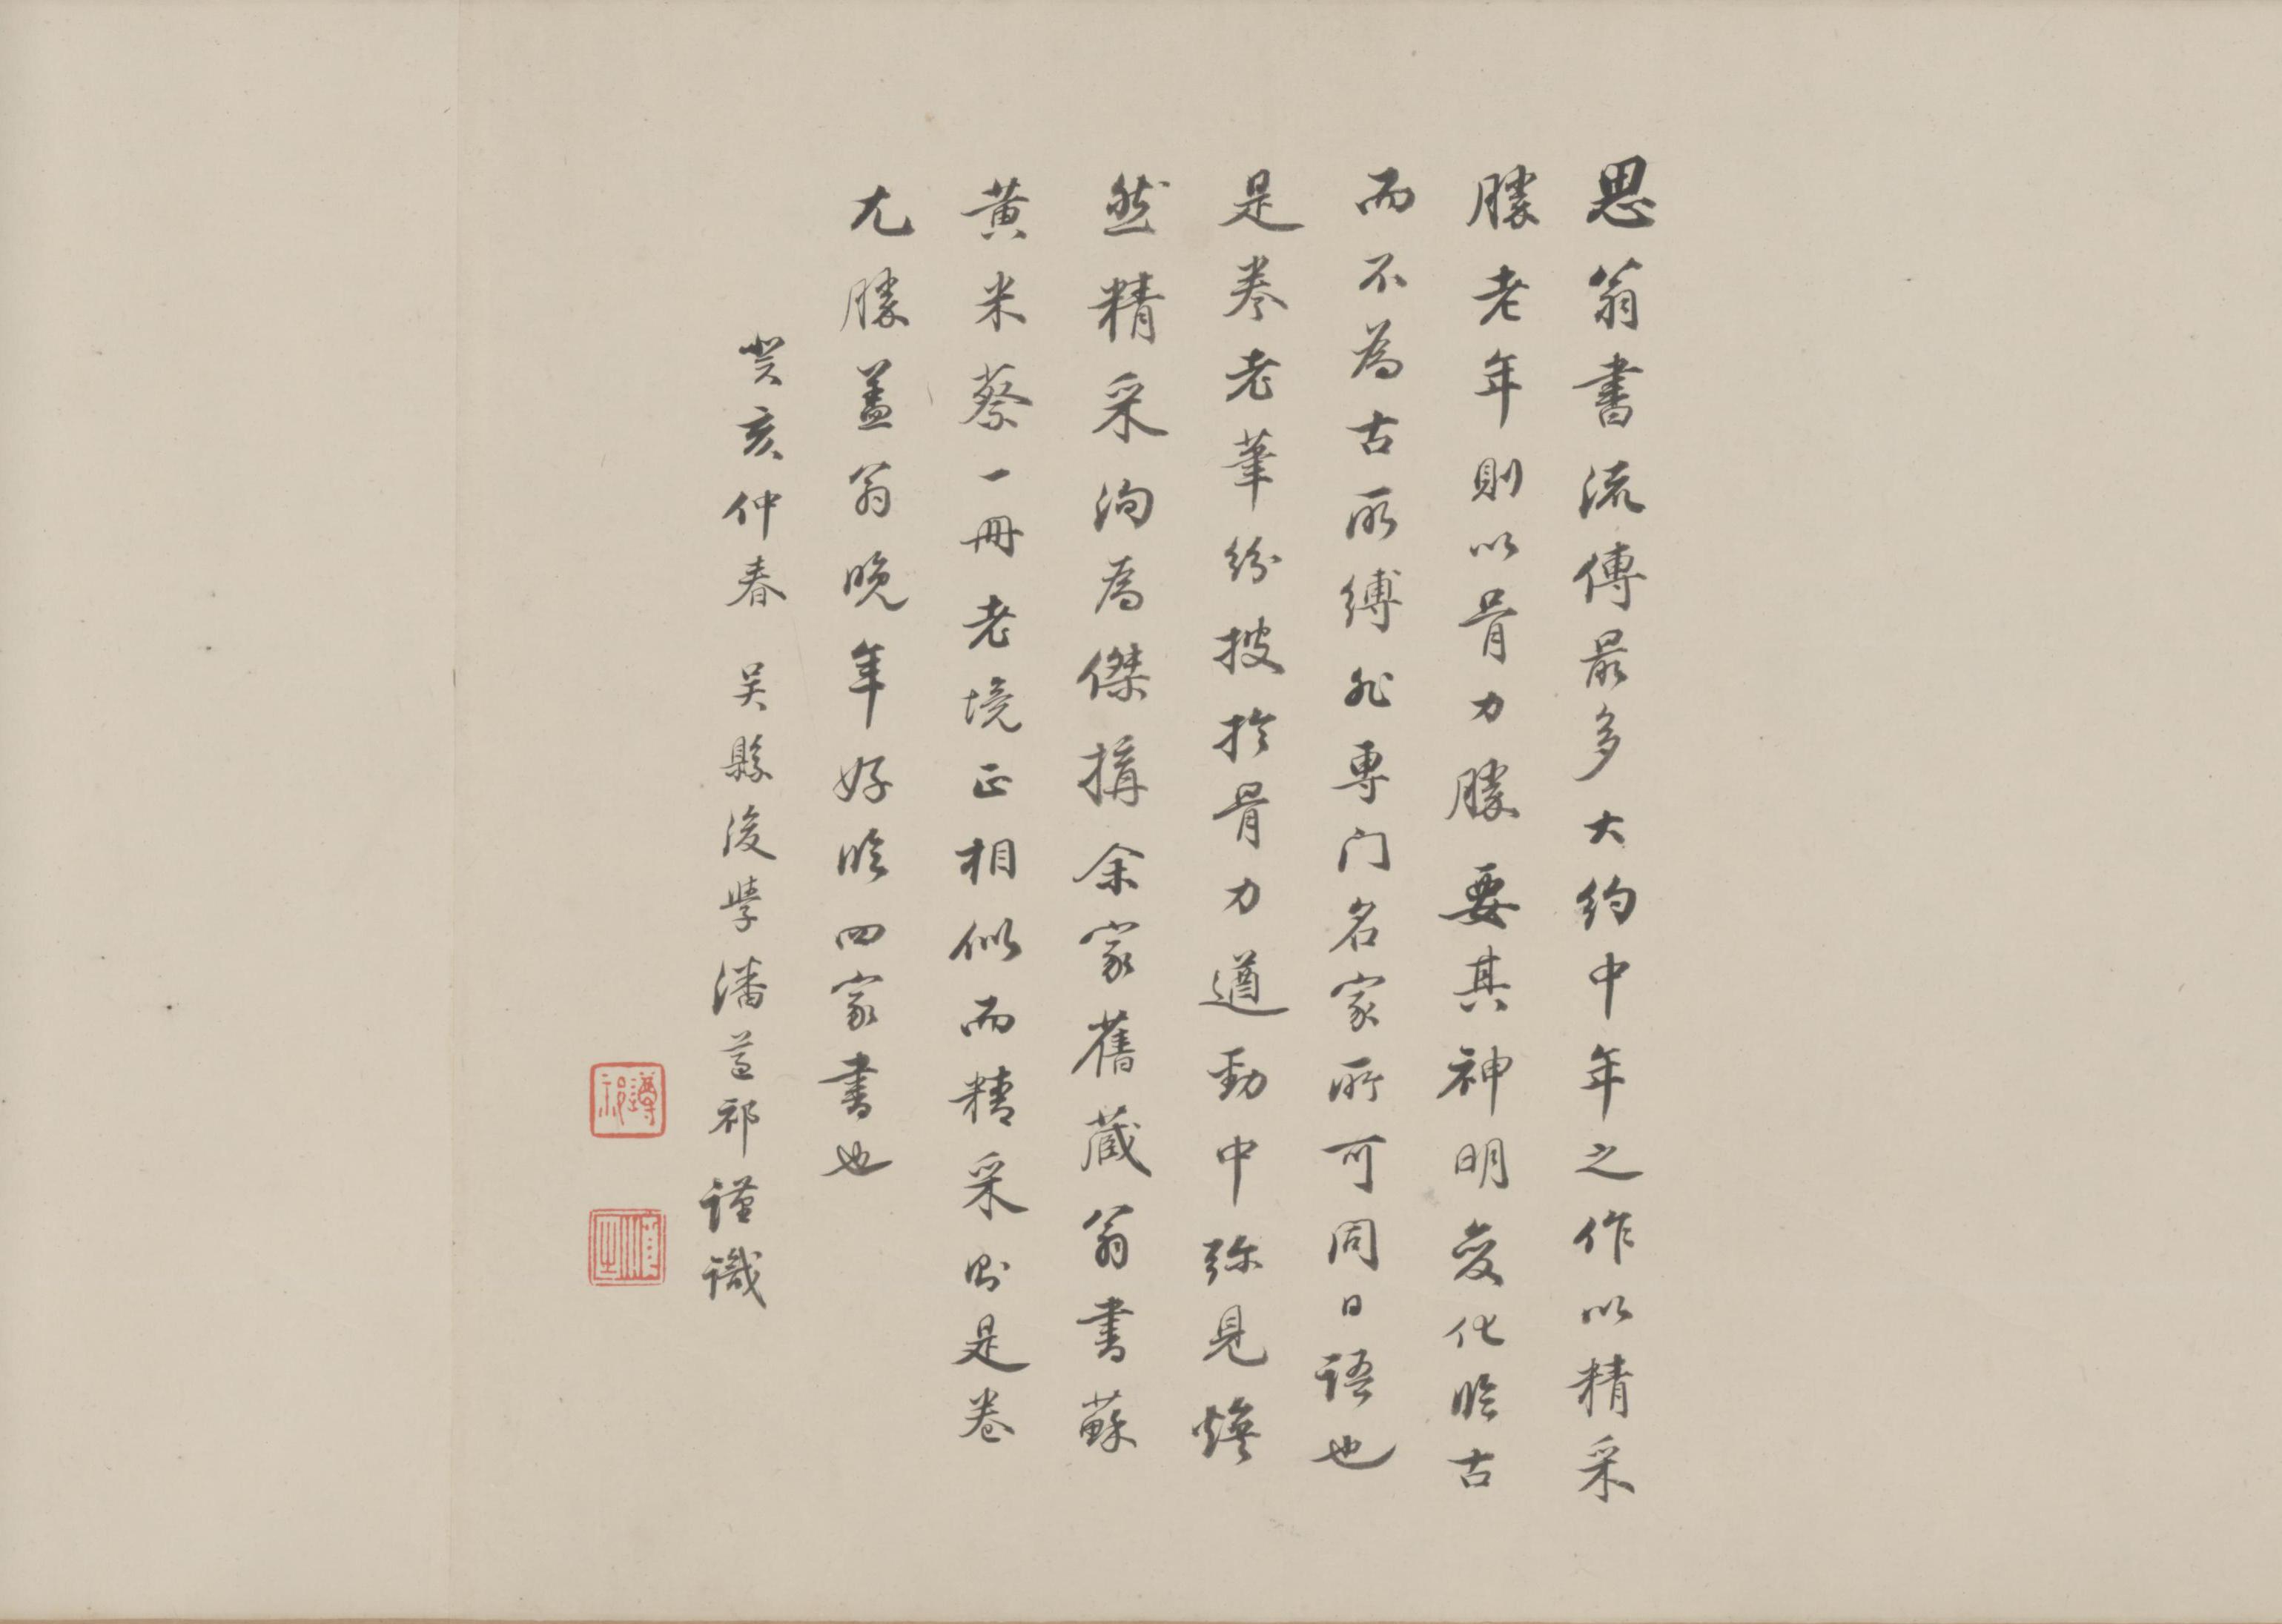 思翁書流傳最多大約中年之作以精采
勝老年則以骨力勝要其神明變化臨古
而不為古所縛非專門名家所可同日語也
是卷老筆紛披於骨力遒勁中彌見煥
然精采洵為傑搆余家舊藏翁書蘇
黃米蔡一冊老境正相似而精采則是卷
尤勝蓋翁晚年好臨四家書也
癸亥仲春 吳縣後學潘遵祁謹識
遵祁
順之